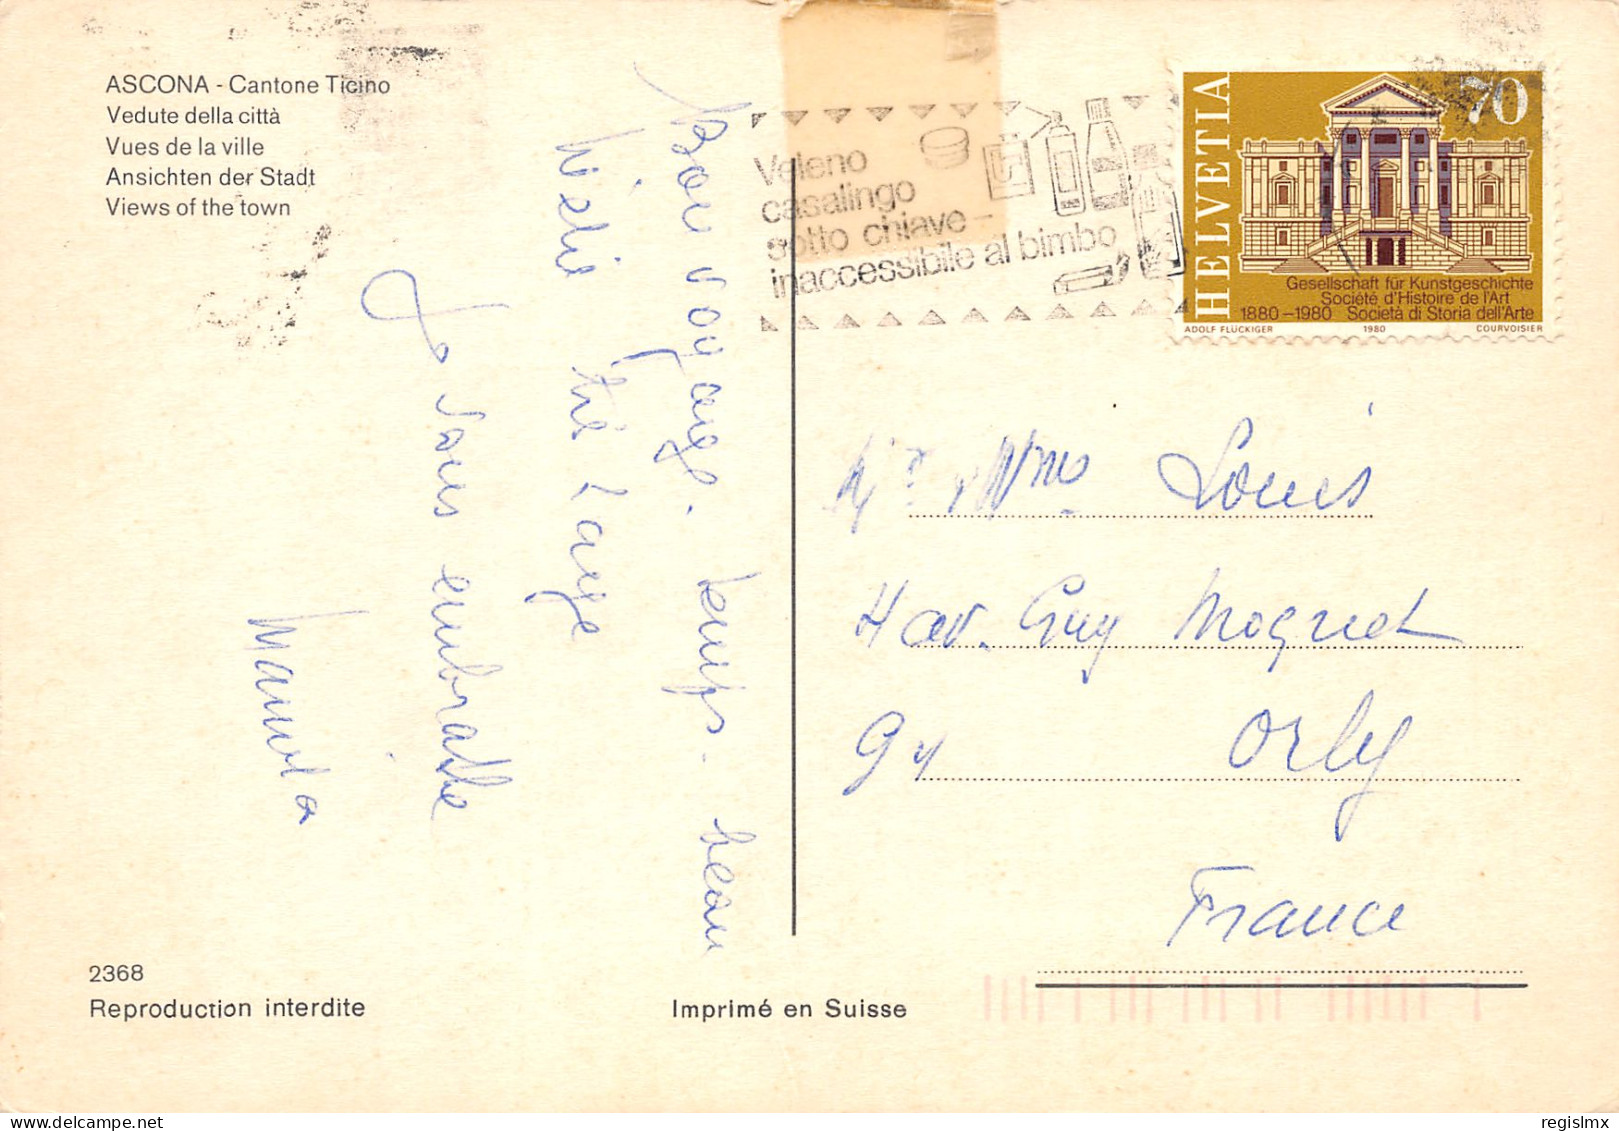 ASCONA - Cantone Ticino
Vedute della città
Vues de la ville
Ansichten der Stadt
Views of the town
Bon voyage. temps. beau
hôtel très
Je vous embrasse
Veleno
casalingo
sotto chiave -
inaccessibile al bimbo
HELVETIA
70
Gesellschaft für Kunstgeschichte
Société d'Histoire de l'Art
1880-1980 Società di Storia dell'Arte
ADOLF FLÜCKIGER 1980 COURVOISIER
Mr & Mme Louis
4 av. Guy Moquet
94 Orly
France
2368
Reproduction interdite
Imprimé en Suisse
regislmx